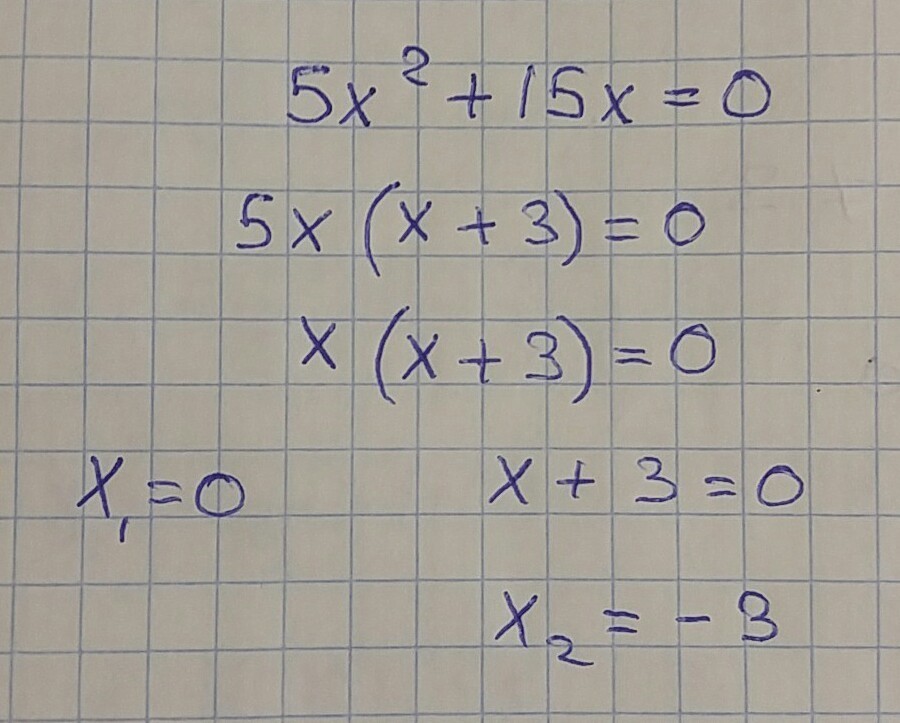 5x² + 15x = 0
5x (x + 3) = 0
x (x + 3) = 0
x₁ = 0 x + 3 = 0
x₂ = - 3